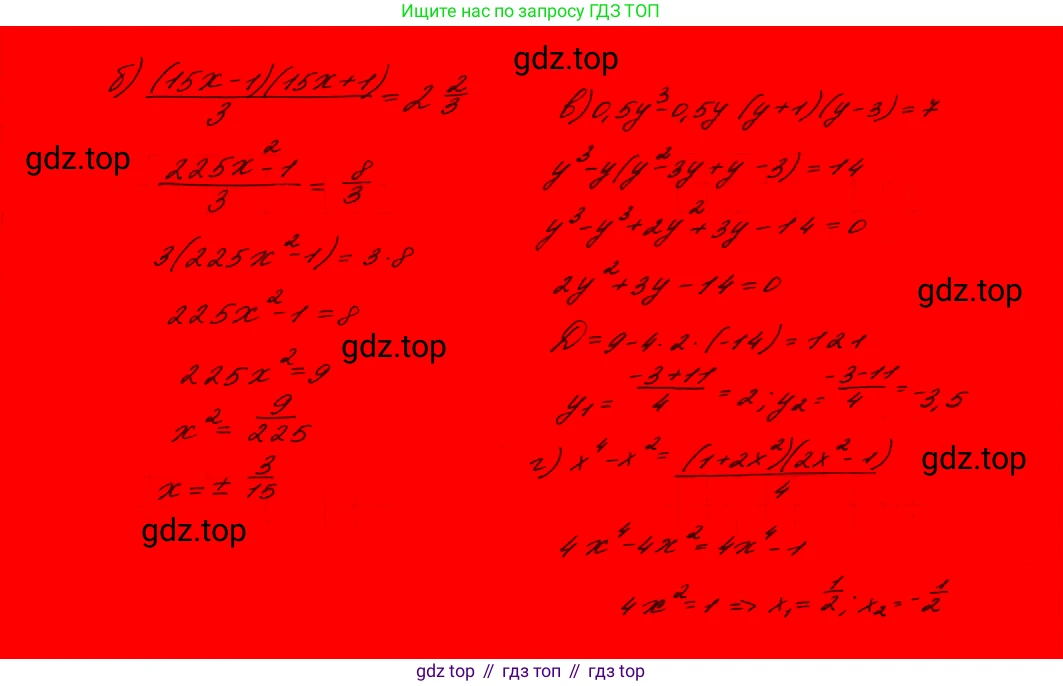 Ищите нас по запросу ГДЗ ТОП
gdz.top
б) (15x-1)(15x+1)/3 = 2 2/3
gdz.top
(225x²-1)/3 = 8/3
3(225x²-1) = 3·8
225x²-1 = 8
gdz.top
225x² = 9
x² = 9/225
x = ± 3/15
gdz.top
в) 0,5y³-0,5y (y+1)(y-3) = 7
y³-y(y²-3y+y-3) = 14
y³-y³+2y²+3y-14=0
gdz.top
2y²+3y-14=0
D = 9-4·2·(-14) = 121
y₁ = (-3+11)/4 = 2; y₂ = (-3-11)/4 = -3,5
г) x⁴-x² = (1+2x²)(2x²-1)/4
gdz.top
4x⁴-4x² = 4x⁴-1
4x²=1 => x₁ = 1/2; x₂ = -1/2
gdz top // гдз топ // gdz top